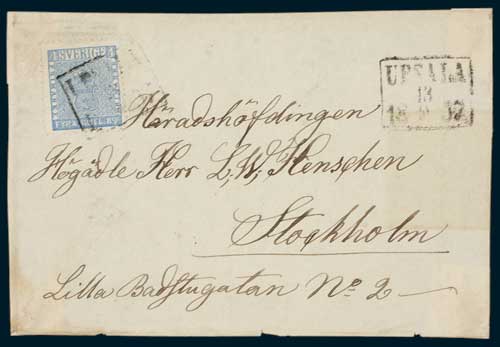 SVERIGE
UPSALA
13
Häradshöfdingen
Högädle Herr L, W, Henschen
Stockholm
Lilla Badstugatan No 2